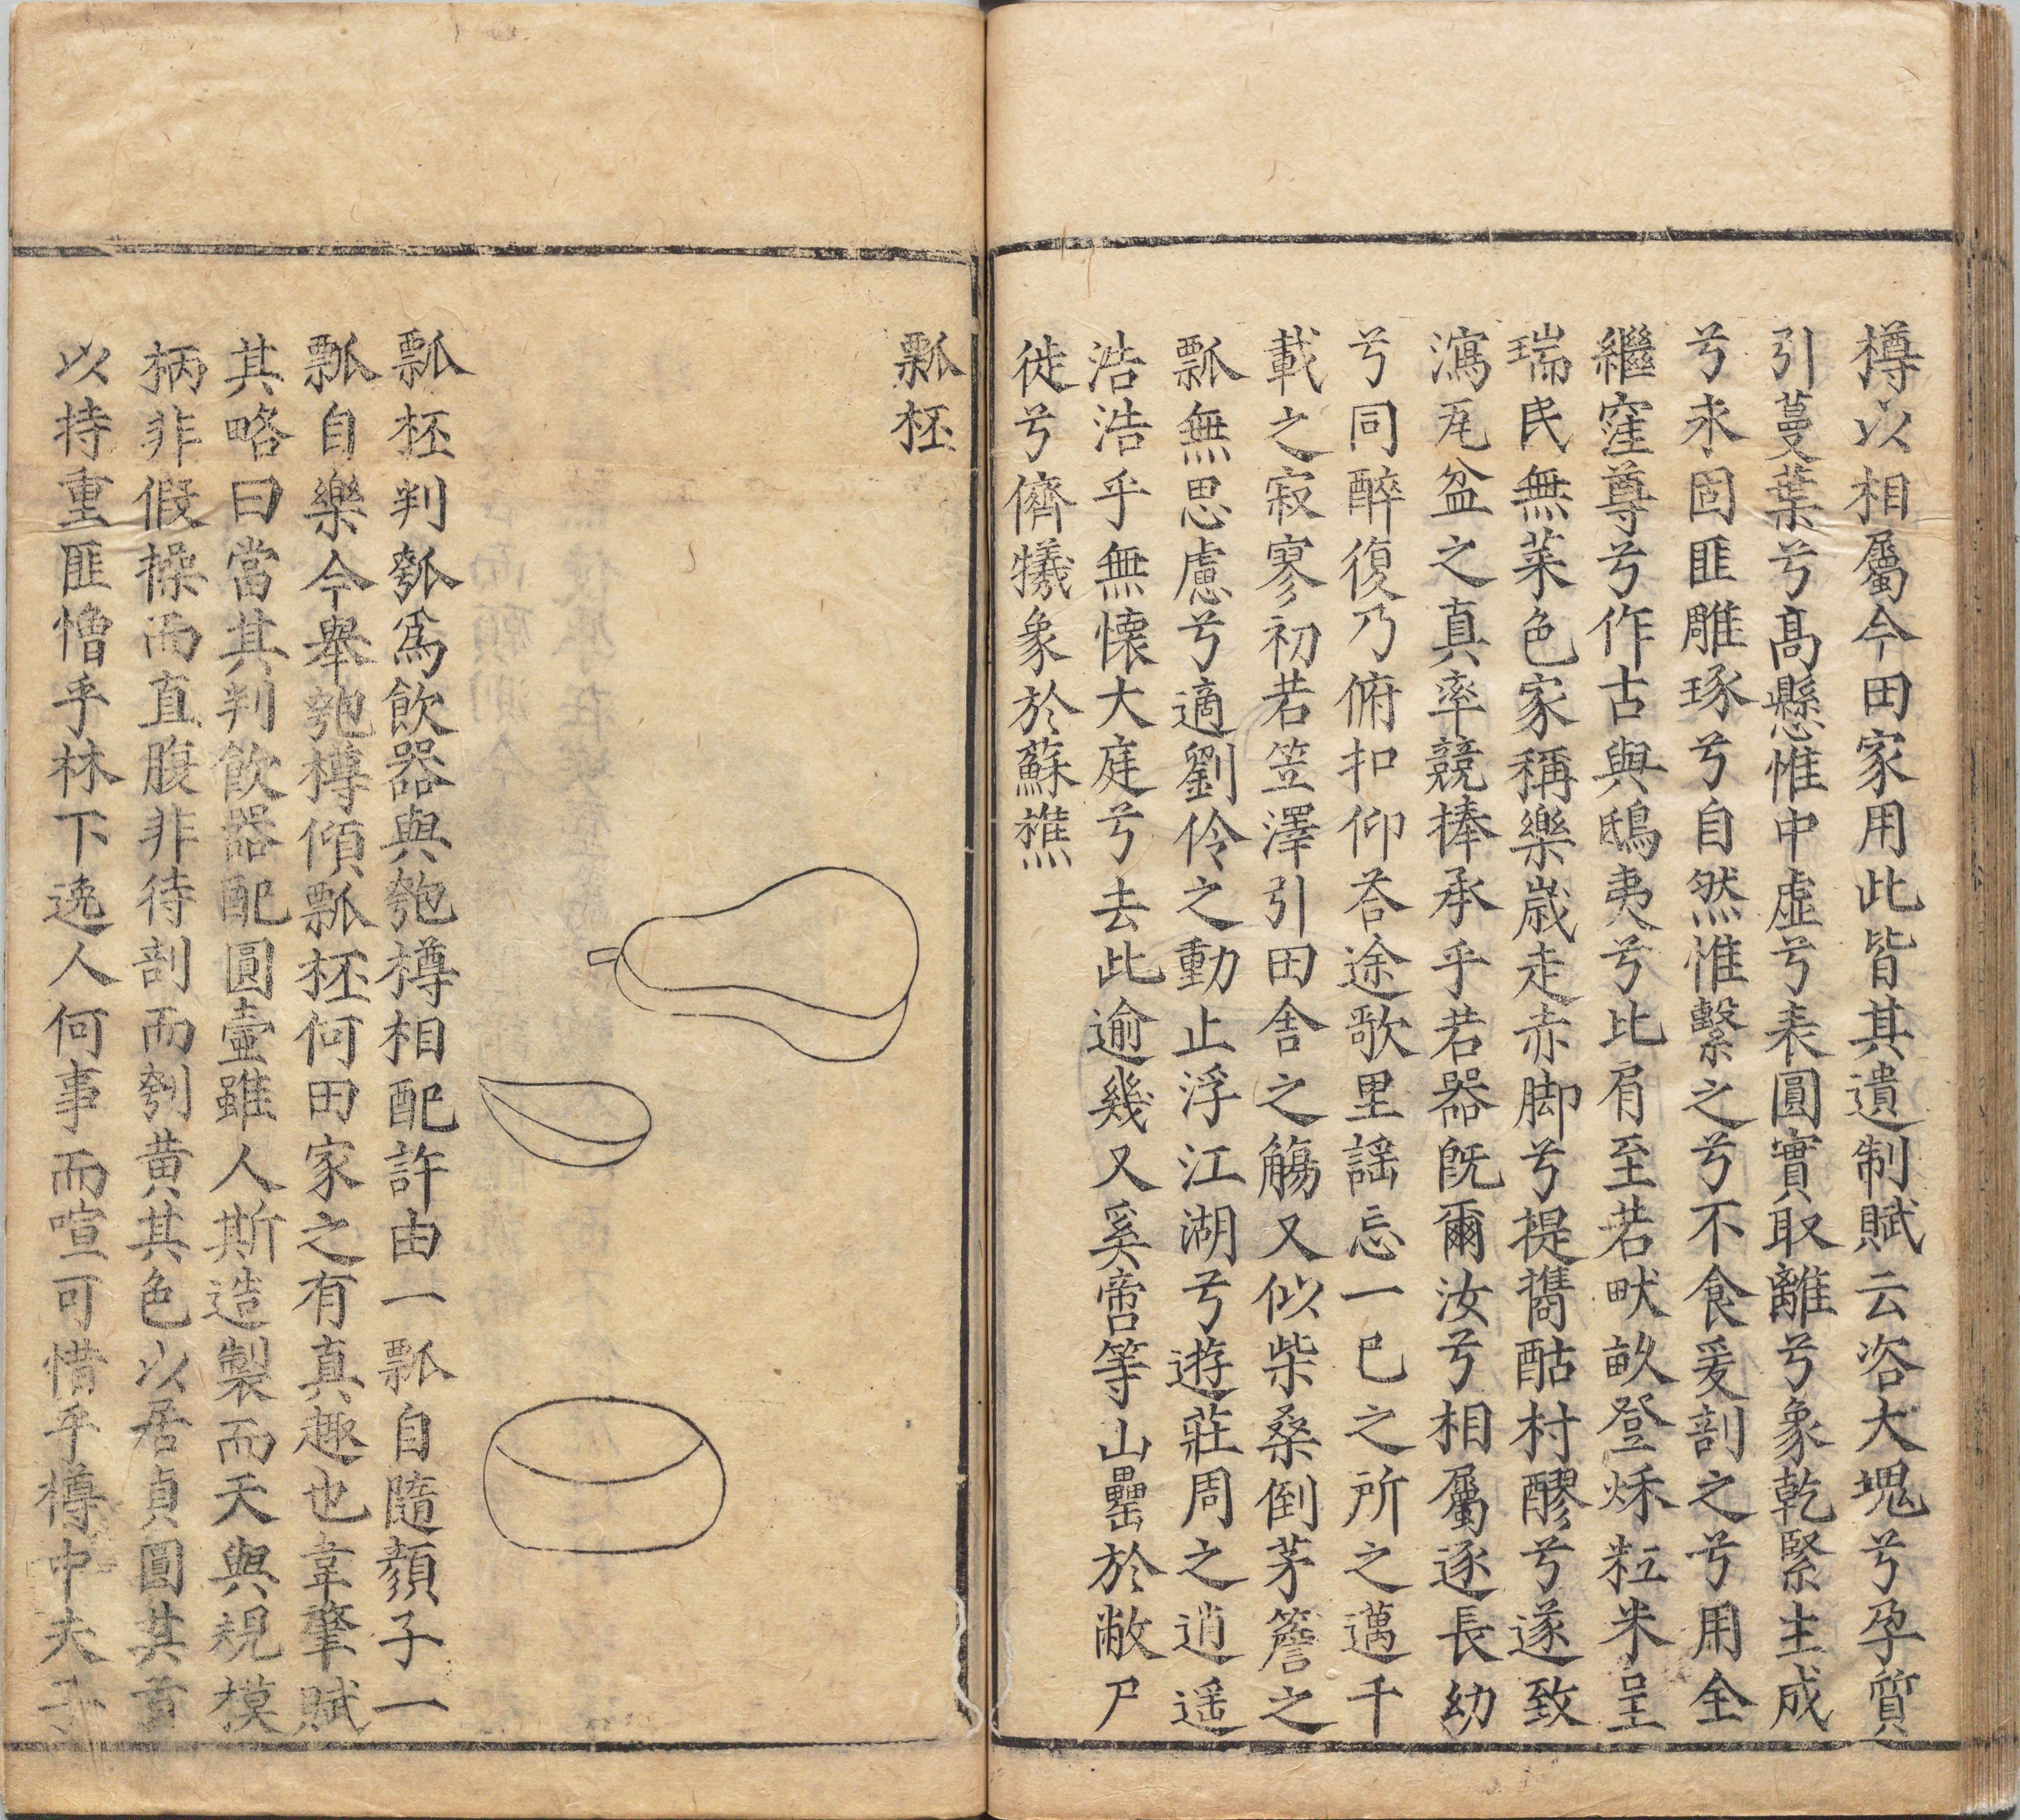 樽以相屬今田家用此皆其遺制賦云咨大塊兮孕質
引蔓葉兮髙懸惟中虛兮表圓實取離兮象乾緊生成
兮永固匪雕琢兮自然惟繫之兮不食爰剖之兮用全
繼窪尊兮作古與鴟夷兮比肩至若畎畝登穌粒米呈
瑞民無菜色家稱樂歲走赤脚兮提攜酤村醪兮遂致
瀉瓦盆之真率競捧承乎若器旣爾汝兮相屬逐長幼
兮同醉復乃俯扣仰荅途歌里謡忘一已之所之邁千
載之寂寥初若笠澤引田舎之觴又似柴桑倒茅簷之
瓢無思慮兮適劉伶之動止浮江湖兮遊莊周之逍遥
浩浩乎無懐大庭兮去此逾幾又奚啻等山罍於敝屣
徙兮儕犧象於蘇樵
瓢柸
瓢柸判瓠爲飲器與匏樽相配許由一瓢自隨顔子一
瓢自樂今舉匏樽傾瓢柸何田家之有真趣也韋肇賦
其略曰當其判飲器配圓壷雖人斯造製而天與規模
柄非假操而直腹非待剖而刳黄其色以居貞圓其首
以持重匪憎乎林下逸人何事而喧可惜乎樽中夫子